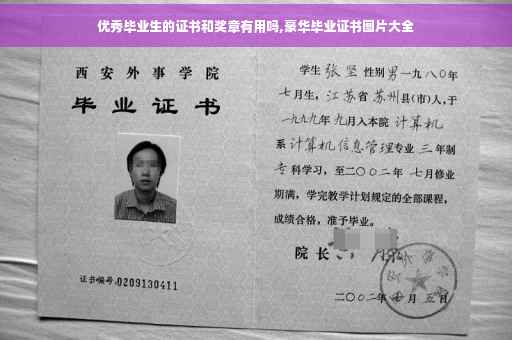 优秀毕业生的证书和奖章有用吗,豪华毕业证书图片大全
西安外事学院
毕业证书
证书编号:0209130411
学生 张坚 性别 男 一九八〇年
七月生, 江苏省 苏州 县(市)人, 于
一九九九年 九月入本院 计算机
系 计算机信息管理 专业 三 年制
专科学习, 至二〇〇二年 七月修业
期满, 学完教学计划规定的全部课程,
成绩合格, 准予毕业。
院长
二〇〇二年 七月 五日